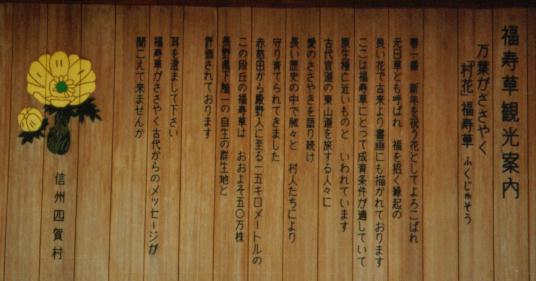 福寿草観光案内
万葉がささやく
「村花」福寿草 ふくじゅそう
春一番 新年を祝う花としてよろこばれ
元日草とも呼ばれ 福を招く縁起の
良い花で古来より書画にも描かれております
ここは福寿草にとって成育条件が適していて
原生種に近いものと いわれています
古代官道の東山道を旅する人々に
愛のささやきを語り続け
長い歴史の中で脈々と 村人たちにより
守り育てられてきました
赤怒田から殿野入に至る一五キロメートルの
この段丘の福寿草は おおよそ五〇万株
長野県下随一の自生の群生地と
評価されております
耳を澄まして下さい
福寿草がささやく古代からのメッセージが
聞こえて来ませんか
信州四賀村